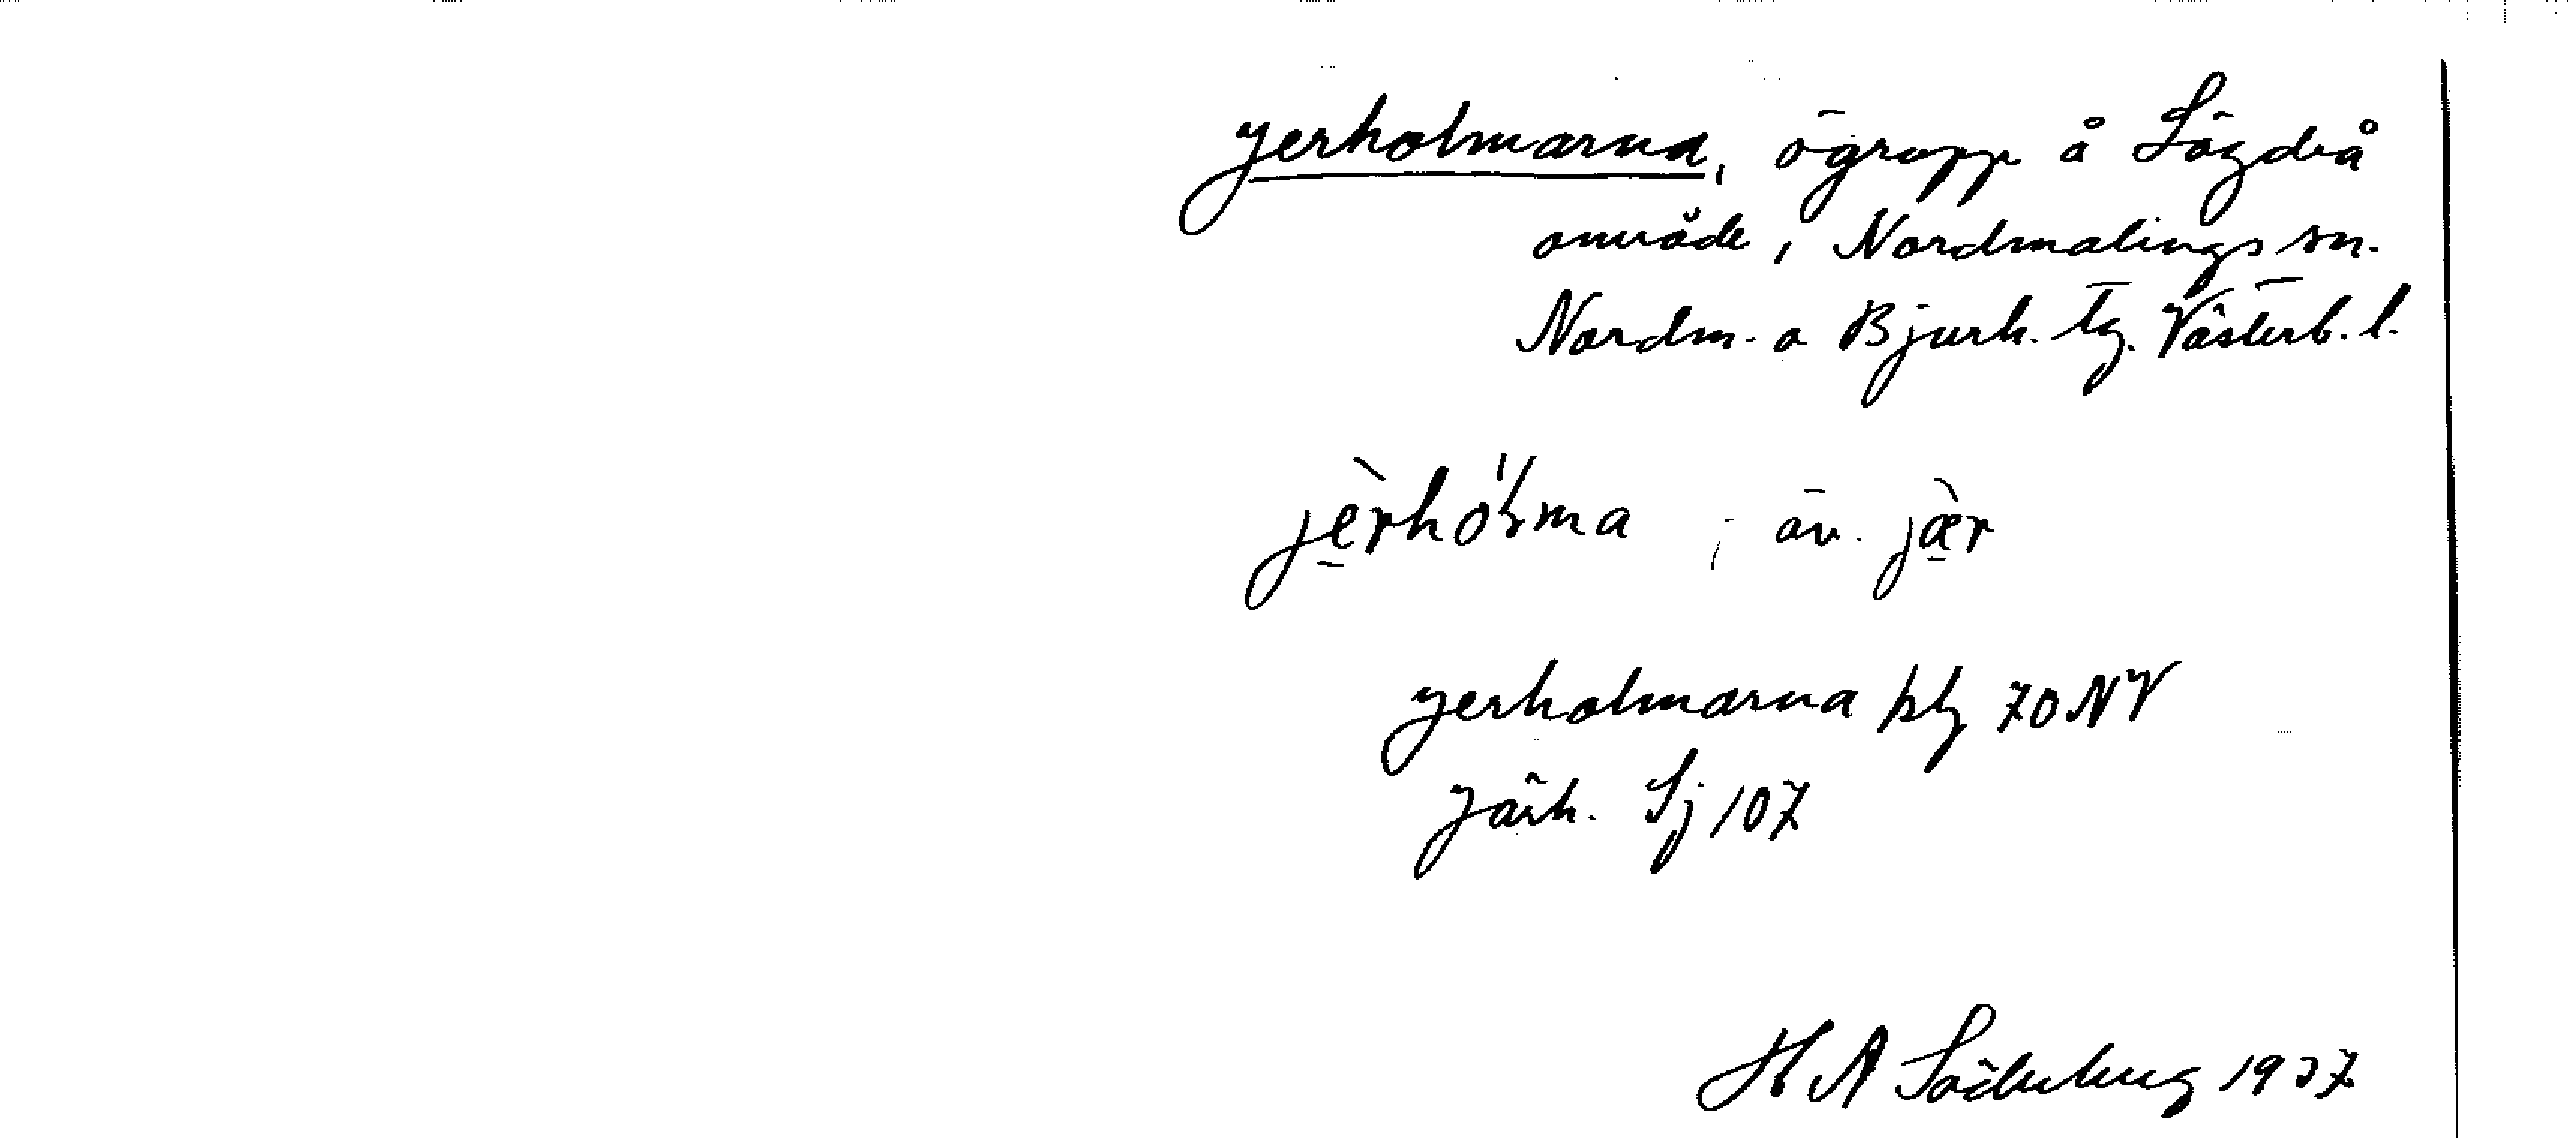 Jerholmarna, ögrupp å Lögdeå
område, Nordmalings sn.
Nordm. o Bjurh. tg. Västerb. l.
jèrhólma ; äv. jæ̀r
Jerholmarna kbl 70 NV
Järh. Sj 107
H A Söderberg 1937